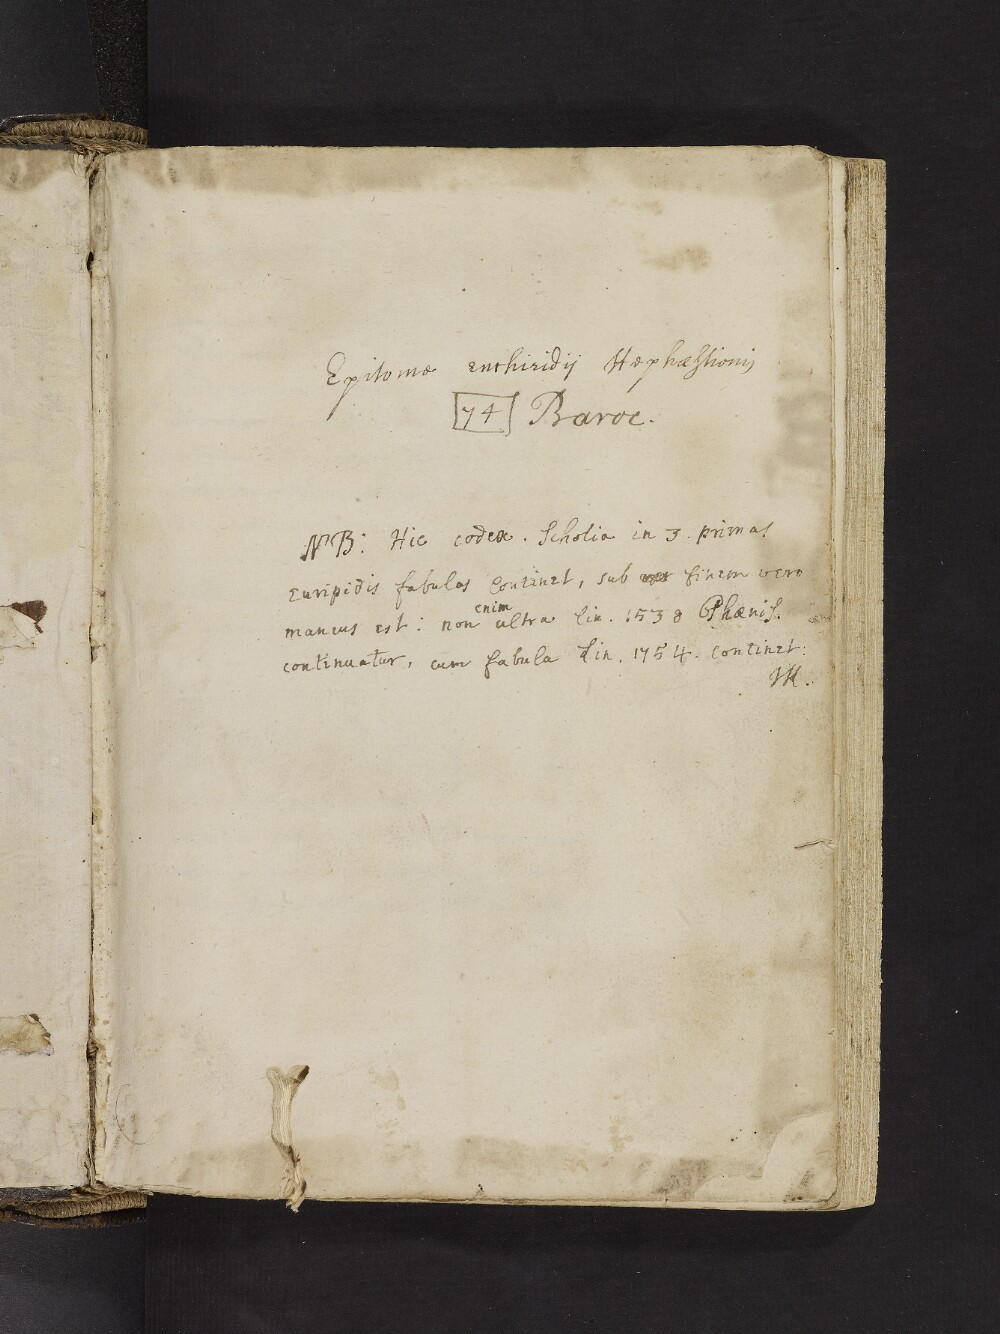 Epitome enchiridij Hephæstionis
74 Baroc.
NB: Hic codex. Scholia in 3. primas
Euripidis fabulas continet, sub finem vero
mancus est: non enim ultra lin. 1538 Phœnis.
continuatur, cum fabula lin. 1754. continet: